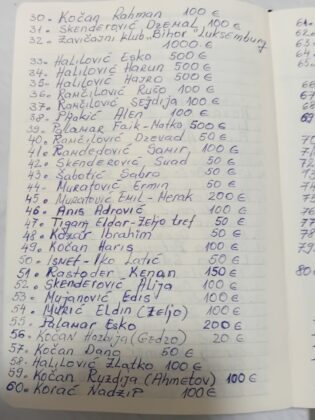 30. Kočan Rahman 100 €
31. Skenderović Džemal 100 €
32. Zavičajni klub „Bihor" Luksemburg
1000. €
33. Halilović Esko 500 €
34. Halilović Harun 500 €
35. Halilović Hajro 500 €
36. Ramčilović Rućo 100 €
37. Ramčilović Sejdija 100 €
38. Alen 100 €
39. Palamar Faik-Matko 500 €
40. Ramčilović Dževad 50 €
41. Ramdedović Samir, 100 €
42. Skenderović, Suad 50 €
43. Šabotić Sabro 50 €
44. Muratović Ermin 50 €
45. Muratović Emil-Merak 200 €
46. Anis Adrović 100 €
47. Tigani Eldar-Zeljo tref 50 €
48. Kožar Ibrahim 50 €
49. Kočan Haris 100 €
50. Ismet-Iko Latić 50 €
51. Rastoder Kenan 150 €
52. Skenderović Alija 100 €
53. Mujanović Edis 100 €
54. Murić Eldin (Zeljo) 100 €
55. Palamar Esko 200 €
56. Kočan (Gedžo) 20 €
57. Kočan Dano 50 €
58. Halilović Zlatko 100 €
59. Kočan Ruždija (Ahmetov) 100 €
60. Korać Nadzip 100 €
61.
62.
63
80